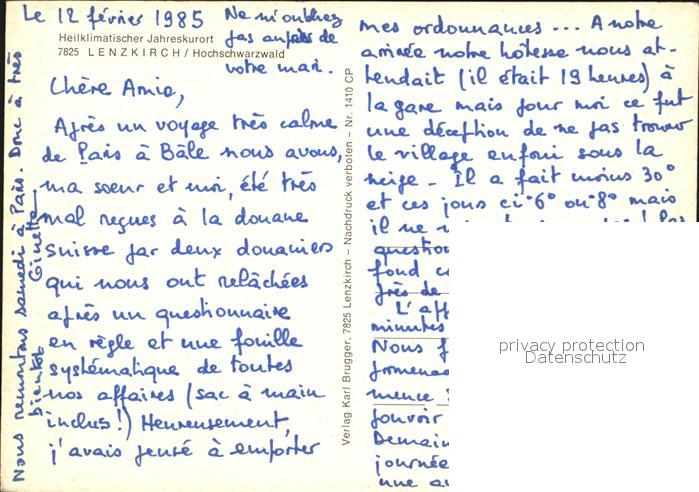 Le 12 février 1985
Ne m'oubliez
pas auprès de
votre mari.
Heilklimatischer Jahreskurort
7825 LENZKIRCH / Hochschwarzwald
Chère Amie,
Après un voyage très calme
de Paris à Bâle nous avons,
ma soeur et moi, été très
mal reçues à la douane
suisse par deux douaniers
qui nous ont relâchées
après un questionnaire
en règle et une fouille
systématique de toutes
nos affaires (sac à main
inclus!) Heureusement,
j'avais pensé à emporter
mes ordonnances... A notre
arrivée notre hôtesse nous at-
tendait (il était 19 heures) à
la gare mais pour moi ce fut
une déception de ne pas trouver
le village enfoui sous la
neige - Il a fait moins 30°
et ces jours ci -6° ou -8° mais
il ne
question
fond
près de
L'aff
minutes
Nous f
promenad
mence
pouvoir
Demain
journée
une
Nous remontons samedi à Paris. Donc à très
bientôt
Ginette
Verlag Karl Brugger, 7825 Lenzkirch – Nachdruck verboten – Nr. 1410 CP
privacy protection
Datenschutz